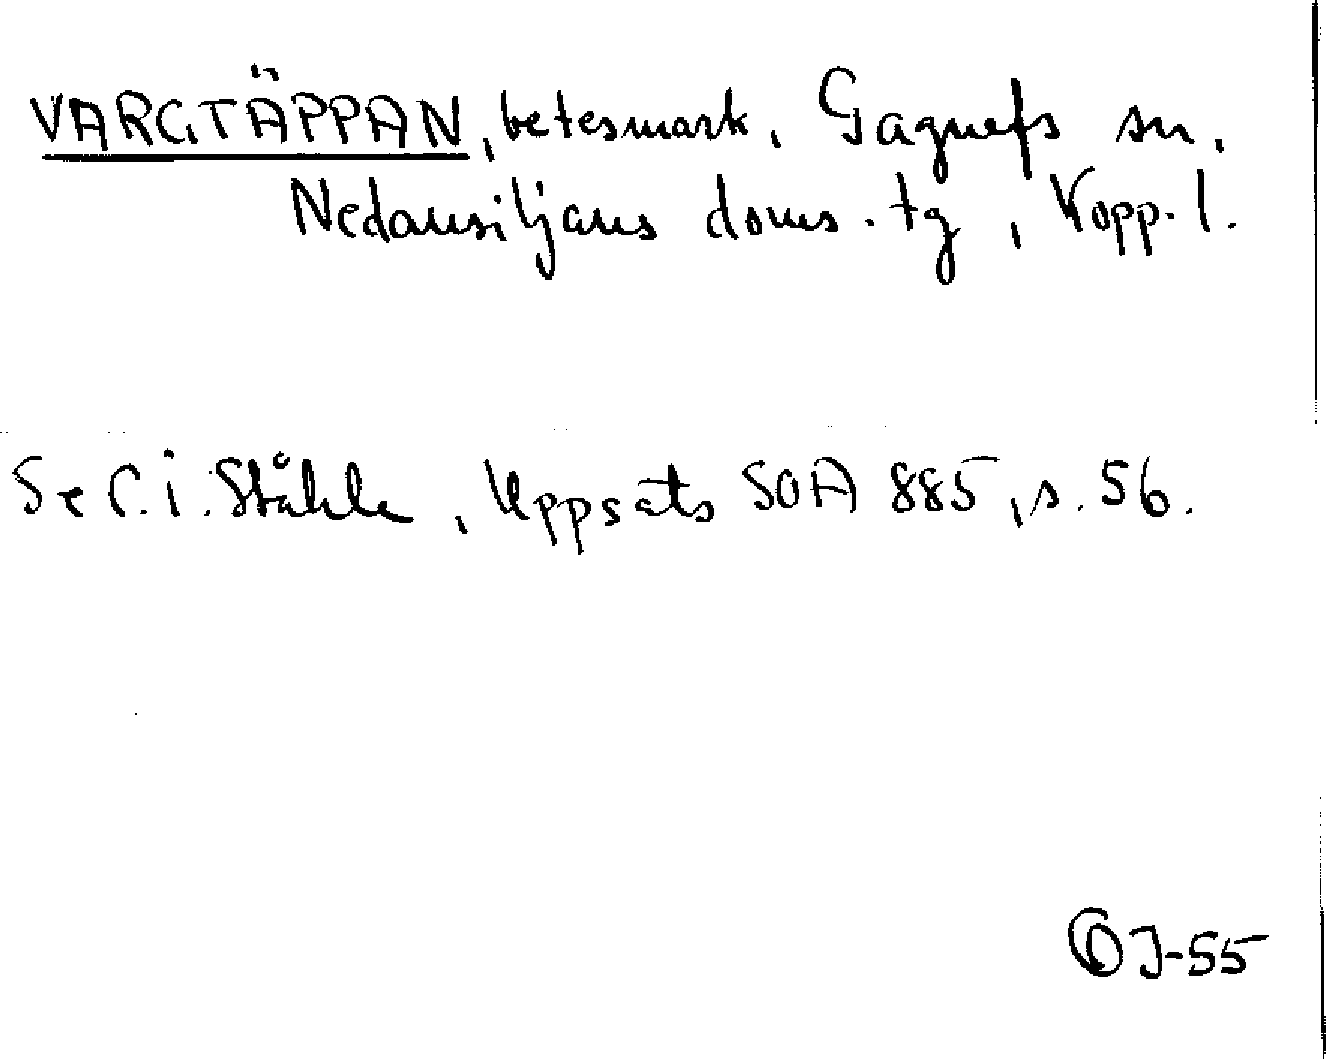 VARGTÄPPAN, betesmark, Gagnefs sn,
Nedansiljans doms. tg, Kopp. l.
Se C. i. Ståhle, Uppsats SOA 885, s. 56.
J-55